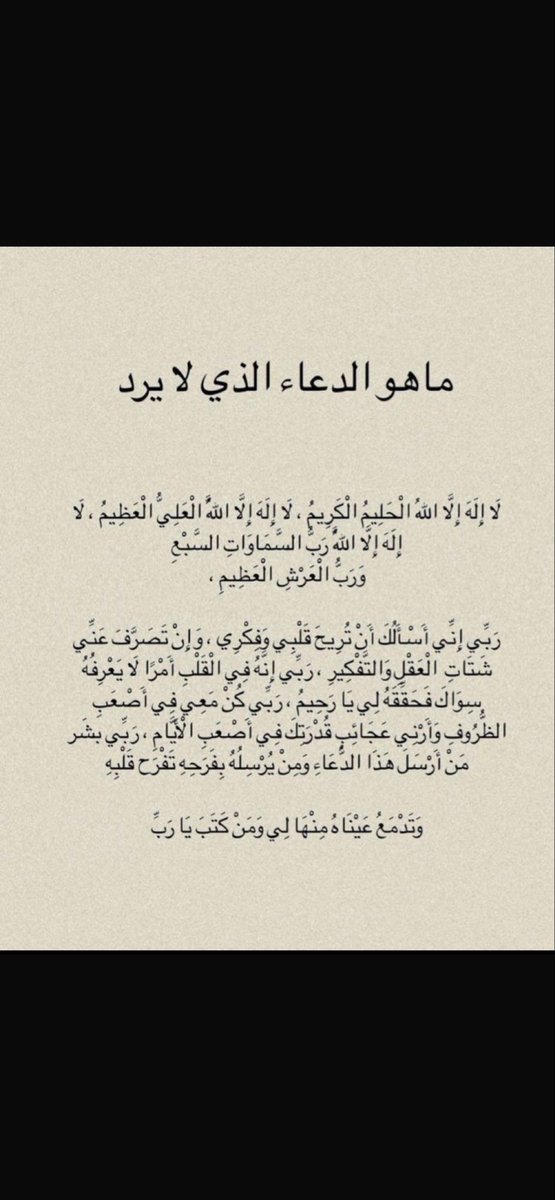 ماهو الدعاء الذي لا يرد
لَا إِلَهَ إِلَّا اللهُ الْحَلِيمُ الْكَرِيمُ ، لَا إِلَهَ إِلَّا اللهُ الْعَلِيُّ الْعَظِيمُ ، لَا
إِلَهَ إِلَّا اللهُ رَبُّ السَّمَاوَاتِ السَّبْعِ
وَرَبُّ الْعَرْشِ الْعَظِيمِ ،
رَبِّي إِنِّي أَسْأَلُكَ أَنْ تُرِيحَ قَلْبِي وَفِكْرِي ، وَإِنْ تَصَرَّفَ عَنِّي
شَتَاتِ الْعَقْلِ وَالتَّفْكِيرِ ، رَبِّي إِنَّهُ فِي الْقَلْبِ أَمْرًا لَا يَعْرِفُهُ
سِوَاكَ فَحَقِّقَهُ لِي يَا رَحِيمُ ، رَبِّي كُنْ مَعِي فِي أَصْعَبِ
الظُّرُوفِ وَأَرْنِي عَجَائِبِ قُدْرَتِكَ فِي أَصْعَبِ الْأَيَّامِ ، رَبِّي بشَر
مَنْ أَرْسَلَ هَذَا الدُّعَاءِ وَمِنْ يُرْسِلُهُ بِفَرَحِهِ تَفْرَح قَلْبِهِ
وَتَدْمَعُ عَيْنَاهُ مِنْهَا لِي وَمَنْ كَتَبَ يَا رَبِّ